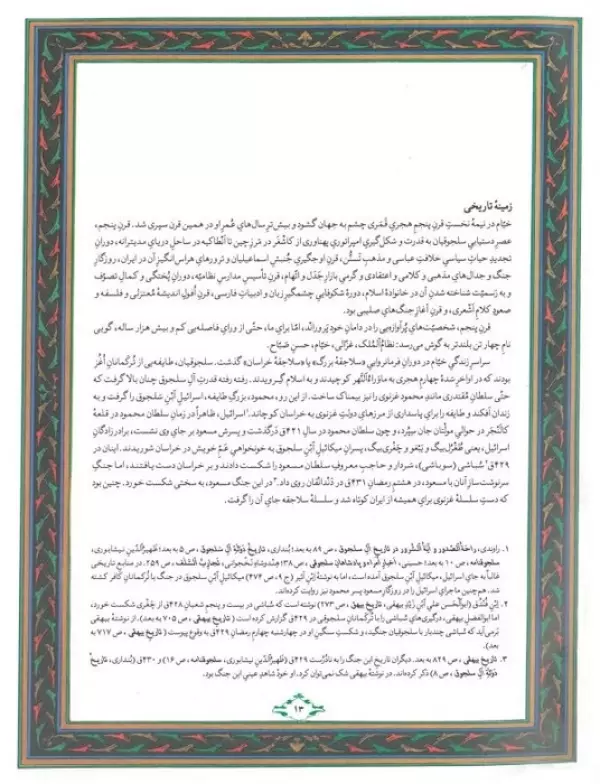 زمینهٔ تاریخی
خیّام در نیمهٔ نخستِ قرنِ پنجم هجریِ قَمَری چشم به جهان گشود و بیش‌ترِ سال‌هایِ عُمرِ او در همین قرن سپری شد. قرنِ پنجم،
عصرِ دستیابیِ سلجوقیان به قدرت و شکل‌گیریِ امپراتوریِ پهناوری از کاشْغَر در مرزِ چین تا اَنْطاکیه در ساحلِ دریایِ مدیترانه، دورانِ
تجدیدِ حیاتِ سیاسیِ خلافتِ عباسی و مذهبِ تَسَنُّن، قرنِ اوجگیریِ جُنبشِ اسماعیلیان و ترورهایِ هراس‌انگیزِ آن در ایران، روزگارِ
جنگ و جدال‌هایِ مذهبی و کلامی و اعتقادی و گرمیِ بازارِ جَدَل و اتّهام، قرنِ تأسیسِ مدارسِ نظامیّه، دورانِ پُختگی و کمالِ تصوّف
و به رَسمیّت شناخته شدنِ آن در خانوادهٔ اسلام، دورهٔ شکوفاییِ چشمگیرِ زبان و ادبیاتِ فارسی، قرنِ اُفولِ اندیشهٔ مُعتزلی و فلسفه و
صعودِ کلامِ اَشْعَری، و قرنِ آغازِ جنگ‌هایِ صلیبی بود.
قرنِ پنجم، شخصیّت‌هایِ پُرآوازه‌یی را در دامانِ خود پَروراند، امّا برایِ ماه، حتّی از ورایِ فاصله‌یی کم و بیش هزار ساله، گویی
نامِ چهار تن بلندتر به گوش می‌رسد: نظامُ‌المُلک، غزّالی، خیّام، حسنِ صَبّاح.
سراسرِ زندگیِ خیّام در دورانِ فرمانرواییِ «سلاجقهٔ بزرگ» یا «سلاجقهٔ خراسان» گذشت. سلجوقیان، طایفه‌یی از تُرکمانانِ اُغُز
بودند که در اواخرِ سَدهٔ چهارم هجری به ماوَراءُالنَّهر کوچیدند و به اسلام گرویدند. رفته رفته قدرتِ آلِ سلجوق چنان بالا گرفت که
حتّی سلطانِ مُقتدری مانندِ محمودِ غزنوی را نیز بیمناک ساخت. از این رو، محمود، بزرگِ طایفه، اسرائیل اِبْنِ سَلجوق را گرفت و به
زندان افکند و طایفه را برایِ پاسداری از مرزهایِ دولتِ غزنوی به خراسان کوچاند.۱ اسرائیل، ظاهراً در زمانِ سلطان محمود در قلعهٔ
کالَنْجَر در حوالیِ مولْتان جان سِپُرد، و چون سلطان محمود در سالِ ۴۲۱ق دَرگذشت و پسرش مسعود بر جایِ وی نشست، برادرزادگانِ
اسرائیل، یعنی طُغْرُل‌بیگ و یَبْغو و چَغْری‌بیگ، پسرانِ میکائیل اِبْنِ سلجوق به خونخواهیِ عَمِّ خویش در خراسان شوریدند. اینان در
۴۲۹ق۲ سُباشی (سوباشی)، سَردار و حاجبِ معروفِ سلطان مسعود را شکست دادند و بر خراسان دست یافتند، امّا جنگِ
سرنوشت‌سازِ آنان با مسعود، در هشتمِ رمضانِ ۴۳۱ق در دَنْدانْقان روی داد.۳ در این جنگ، مسعود، به سختی شکست خورد. چنین بود
که دستِ سلسلهٔ غزنوی برای همیشه از ایران کوتاه شد و سلسلهٔ سلاجقه جایِ آن را گرفت.
۱. راوندی، راحةُالصُّدور و آیَةُ السُّرور در تاریخِ آلِ سلجوق، ص ۸۹ به بعد؛ بُنداری، تاریخِ دَوْلَةِ آلِ سَلجوق، ص ۵ به بعد؛ ظَهیرُالدّین نیشابوری،
سلجوقنامه، ص ۱۰ به بعد؛ حسینی، ؛ هِندوشاهِ نَخْجَوانی، تَجارِبُ السَّلَف، ص ۲۵۹. در منابعِ تاریخی
غالباً به جایِ اسرائیل، میکائیل اِبْنِ سلجوق آمده است، اما به نوشتهٔ اِبْنِ اَثیر (ج ۹، ص ۴۷۴) میکائیل اِبْنِ سلجوق در جنگ با تُرکمانانِ کافر کشته
شد. هم‌چنین ماجرایِ اسرائیل را در روزگارِ مسعود پسرِ محمود نیز روایت کرده‌اند.
۲. اِبْنِ فُنْدُق (ابوالحَسَن علی اِبْنِ زَیْدِ بِیْهَقی، تاریخِ بیهق، ص ۲۷۳) نوشته است که سُباشی در بیست و پنجمِ شعبانِ ۴۲۸ق از چَغْری شکست خورد،
اما ابوالفضلِ بیهقی، درگیری‌هایِ سُباشی را با تُرکمانانِ سلجوقی در ۴۲۹ق گزارش کرده است (تاریخِ بیهقی، ص ۷۰۵ به بعد). از نوشتهٔ بیهقی
برمی‌آید که سُباشی چندبار با سلجوقیان جنگید، و شکستِ سنگینِ او در چهارشنبه چهارمِ رمضانِ ۴۲۹ق به وقوع پیوست (تاریخِ بیهقی، ص ۷۱۷ به
بعد).
۳. تاریخِ بیهقی، ص ۸۲۹ به بعد. دیگران تاریخِ این جنگ را به نادُرُست ۴۲۹ق (ظَهیرُالدّینِ نیشابوری، سلجوقنامه، ص ۱۶) و ۴۳۰ق (بُنداری، تاریخِ
دَوْلَةِ آلِ سَلجوق، ص ۸) ذکر کرده‌اند. در نوشتهٔ بیهقی شک نمی‌توان کرد. او خودْ شاهدِ عینیِ این جنگ بود.
۱۳